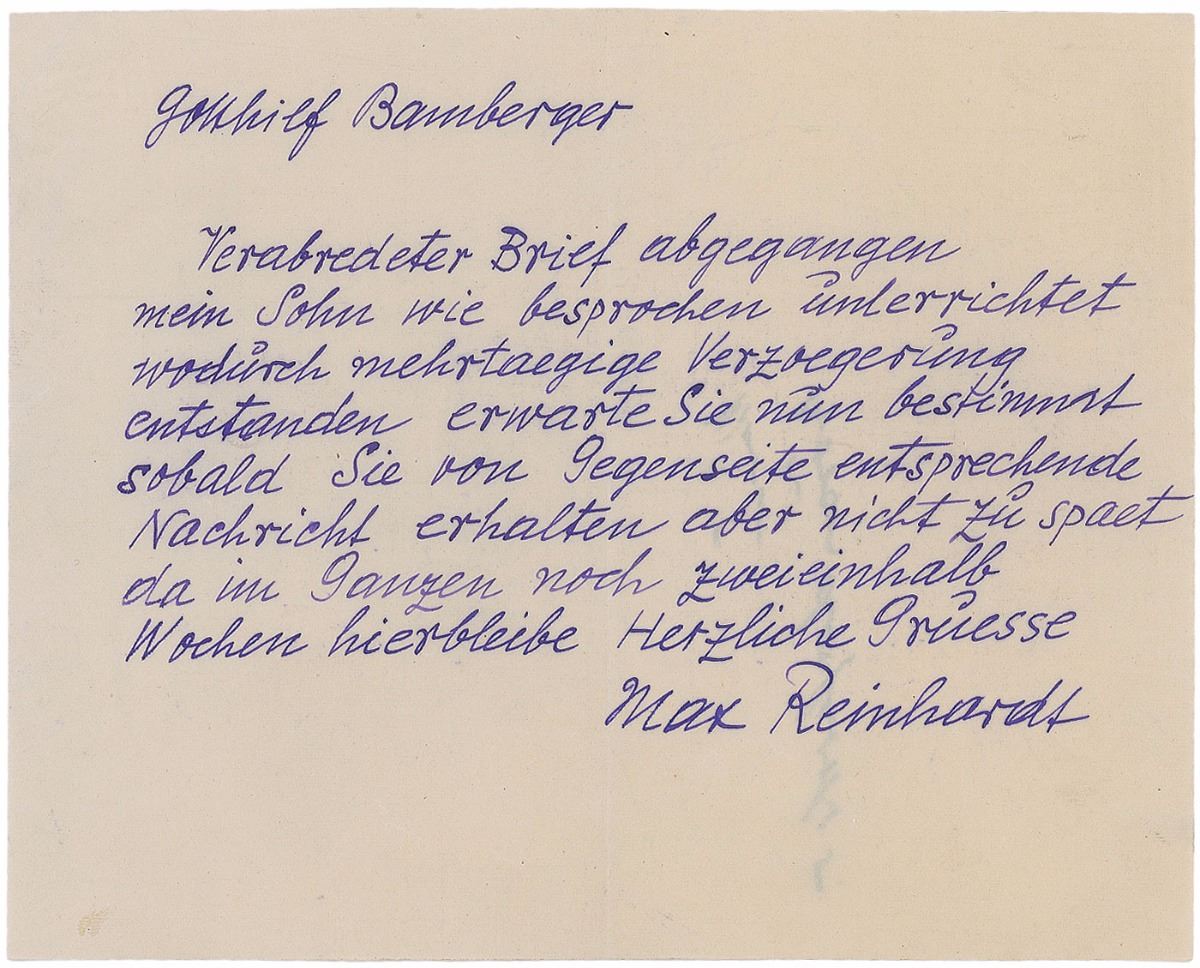 Gotthilf Bamberger
Verabredeter Brief abgegangen
mein Sohn wie besprochen unterrichtet
wodurch mehrtaegige Verzoegerung
entstanden erwarte Sie nun bestimmt
sobald Sie von Gegenseite entsprechende
Nachricht erhalten aber nicht zu spaet
da im Ganzen noch zweieinhalb
Wochen hierbleibe Herzliche Gruesse
Max Reinhardt